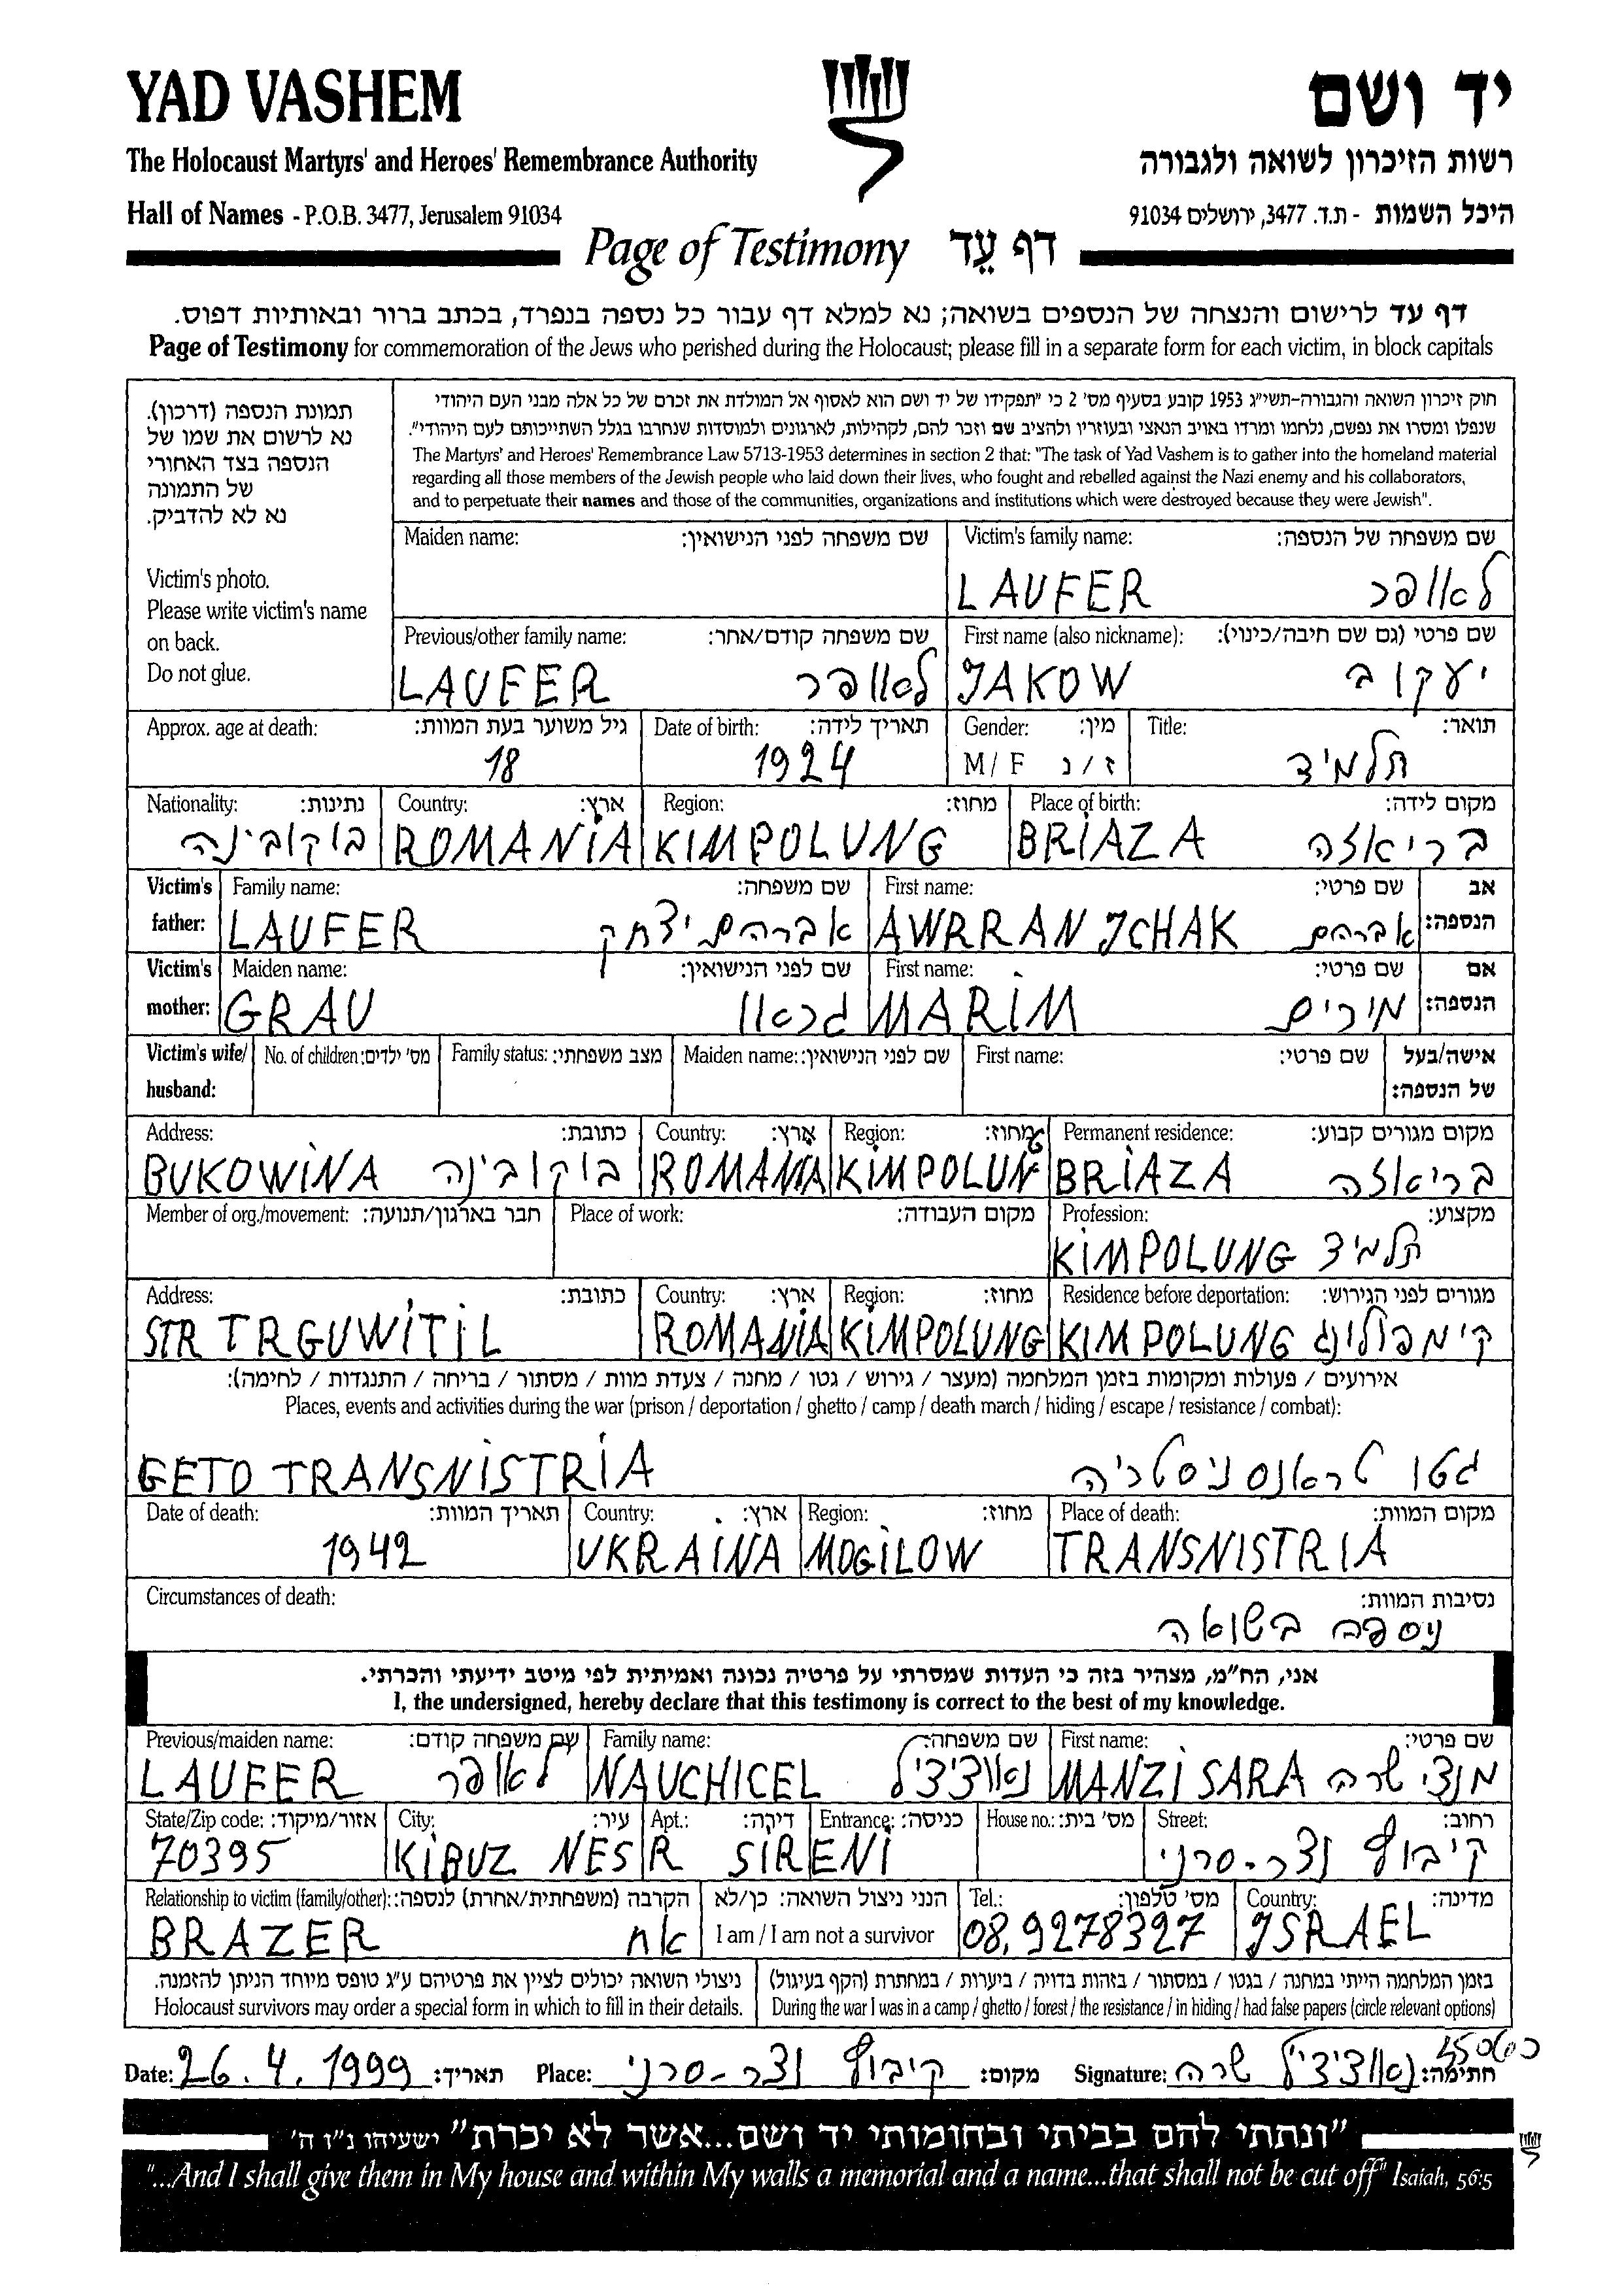 YAD VASHEM יד ושם
The Holocaust Martyrs' and Heroes' Remembrance Authority רשות הזיכרון לשואה ולגבורה
Hall of Names - P.O.B. 3477, Jerusalem 91034 היכל השמות - ת.ד. 3477, ירושלים 91034
Page of Testimony דף עֵד
דף עד לרישום והנצחה של הנספים בשואה; נא למלא דף עבור כל נספה בנפרד, בכתב ברור ובאותיות דפוס.
Page of Testimony for commemoration of the Jews who perished during the Holocaust; please fill in a separate form for each victim, in block capitals
תמונת הנספה (דרכון).
נא לרשום את שמו של
הנספה בצד האחורי
של התמונה
נא לא להדביק.
Victim's photo.
Please write victim's name
on back.
Do not glue.
חוק זיכרון השואה והגבורה-תשי"ג 1953 קובע בסעיף מס' 2 כי "תפקידו של יד ושם הוא לאסוף אל המולדת את זכרם של כל אלה מבני העם היהודי
שנפלו ומסרו את נפשם, נלחמו ומרדו באויב הנאצי ובעוזריו ולהציב שם וזכר להם, לקהילות, לארגונים ולמוסדות שנחרבו בגלל השתייכותם לעם היהודי".
The Martyrs' and Heroes' Remembrance Law 5713-1953 determines in section 2 that: "The task of Yad Vashem is to gather into the homeland material
regarding all those members of the Jewish people who laid down their lives, who fought and rebelled against the Nazi enemy and his collaborators,
and to perpetuate their names and those of the communities, organizations and institutions which were destroyed because they were Jewish".
Maiden name: שם משפחה לפני הנישואין: Victim's family name: שם משפחה של הנספה:
LAUFER לאופר
Previous/other family name: שם משפחה קודם/אחר: First name (also nickname): שם פרטי (גם שם חיבה/כינוי):
LAUFER לאופר JAKOW יעקוב
Approx. age at death: גיל משוער בעת המוות: Date of birth: תאריך לידה: Gender: מין: Title: תואר:
18 1924 M/ F ז / נ תלמיד
Nationality: נתינות: Country: ארץ: Region: מחוז: Place of birth: מקום לידה:
בוקובינה ROMANIA KIMPOLUNG BRIAZA בריאזה
Victim's Family name: שם משפחה: First name: שם פרטי: אב
father: LAUFER אברהם יצחק AWRRAN JCHAK אברהם הנספה:
Victim's Maiden name: שם לפני הנישואין: First name: שם פרטי: אם
mother: GRAU גראו MARIM מירים הנספה:
Victim's wife/ No. of children: מס' ילדים: Family status: מצב משפחתי: Maiden name: שם לפני הנישואין: First name: שם פרטי: אישה/בעל
husband: של הנספה:
Address: כתובת: Country: ארץ: Region: מחוז: Permanent residence: מקום מגורים קבוע:
BUKOWINA בוקובינה ROMANIA KIMPOLUNG BRIAZA בריאזה
Member of org./movement: חבר בארגון/תנועה: Place of work: מקום העבודה: Profession: מקצוע:
KIMPOLUNG תלמיד
Address: כתובת: Country: ארץ: Region: מחוז: Residence before deportation: מגורים לפני הגירוש:
STR TRGUWITIL ROMANIA KIMPOLUNG KIMPOLUNG קימפולונג
אירועים / פעולות ומקומות בזמן המלחמה (מעצר / גירוש / גטו / מחנה / צעדת מוות / מסתור / בריחה / התנגדות / לחימה):
Places, events and activities during the war (prison / deportation / ghetto / camp / death march / hiding / escape / resistance / combat):
GETO TRANSNISTRIA גטו טראנסניסטריה
Date of death: תאריך המוות: Country: ארץ: Region: מחוז: Place of death: מקום המוות:
1942 UKRAINA MOGILOW TRANSNISTRIA
Circumstances of death: נסיבות המוות:
ניספה בשואה
אני, הח"מ, מצהיר בזה כי העדות שמסרתי על פרטיה נכונה ואמיתית לפי מיטב ידיעתי והכרתי.
I, the undersigned, hereby declare that this testimony is correct to the best of my knowledge.
Previous/maiden name: שם משפחה קודם: Family name: שם משפחה: First name: שם פרטי:
LAUFER לאופר NAUCHICEL נאוציציל MANZI SARA מנצי שרה
State/Zip code: אזור/מיקוד: City: עיר: Apt.: דירה: Entrance: כניסה: House no.: מס' בית: Street: רחוב:
70395 KIBUZ NESR SIRENI קיבוץ נצר-סרני
Relationship to victim (family/other): הקרבה (משפחתית/אחרת) לנספה: הנני ניצול השואה: כן/לא Tel.: מס' טלפון: Country: מדינה:
BRAZER אח I am / I am not a survivor 08.9278327 JSRAEL
ניצולי השואה יכולים לציין את פרטיהם ע"ג טופס מיוחד הניתן להזמנה. בזמן המלחמה הייתי במחנה / בגטו / במסתור / בזהות בדויה / ביערות / במחתרת (הקף בעיגול)
Holocaust survivors may order a special form in which to fill in their details. During the war I was in a camp / ghetto / forest / the resistance / in hiding / had false papers (circle relevant options)
Date: 26.4.1999 תאריך: Place: קיבוץ נצר-סרני מקום: Signature: נאוציציל שרה חתימה:
"ונתתי להם בביתי ובחומותי יד ושם...אשר לא יכרת" ישעיהו נ"ו ה'
"...And I shall give them in My house and within My walls a memorial and a name...that shall not be cut off" Isaiah, 56:5